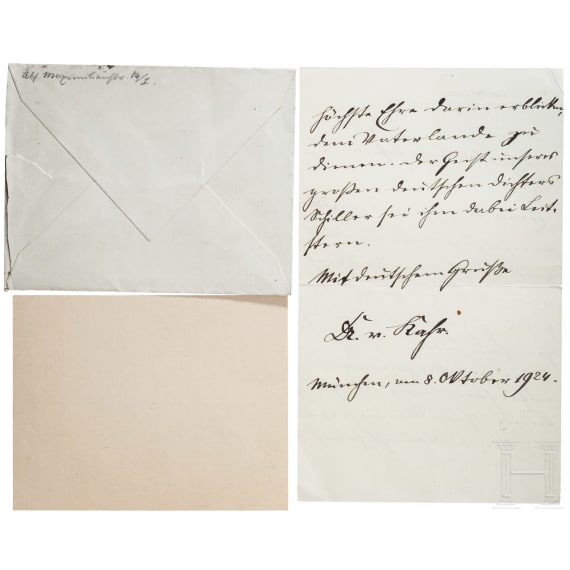 Abs. Maximilianstr. 14/I.
höchste Ehre darin erblicken,
dem Vaterlande zu
dienen. Der Geist unseres
großen deutschen Dichters
Schiller sei ihm dabei Leit-
stern.
Mit deutschem Gruße
Dr. v. Kahr.
München, am 8. Oktober 1924.
H